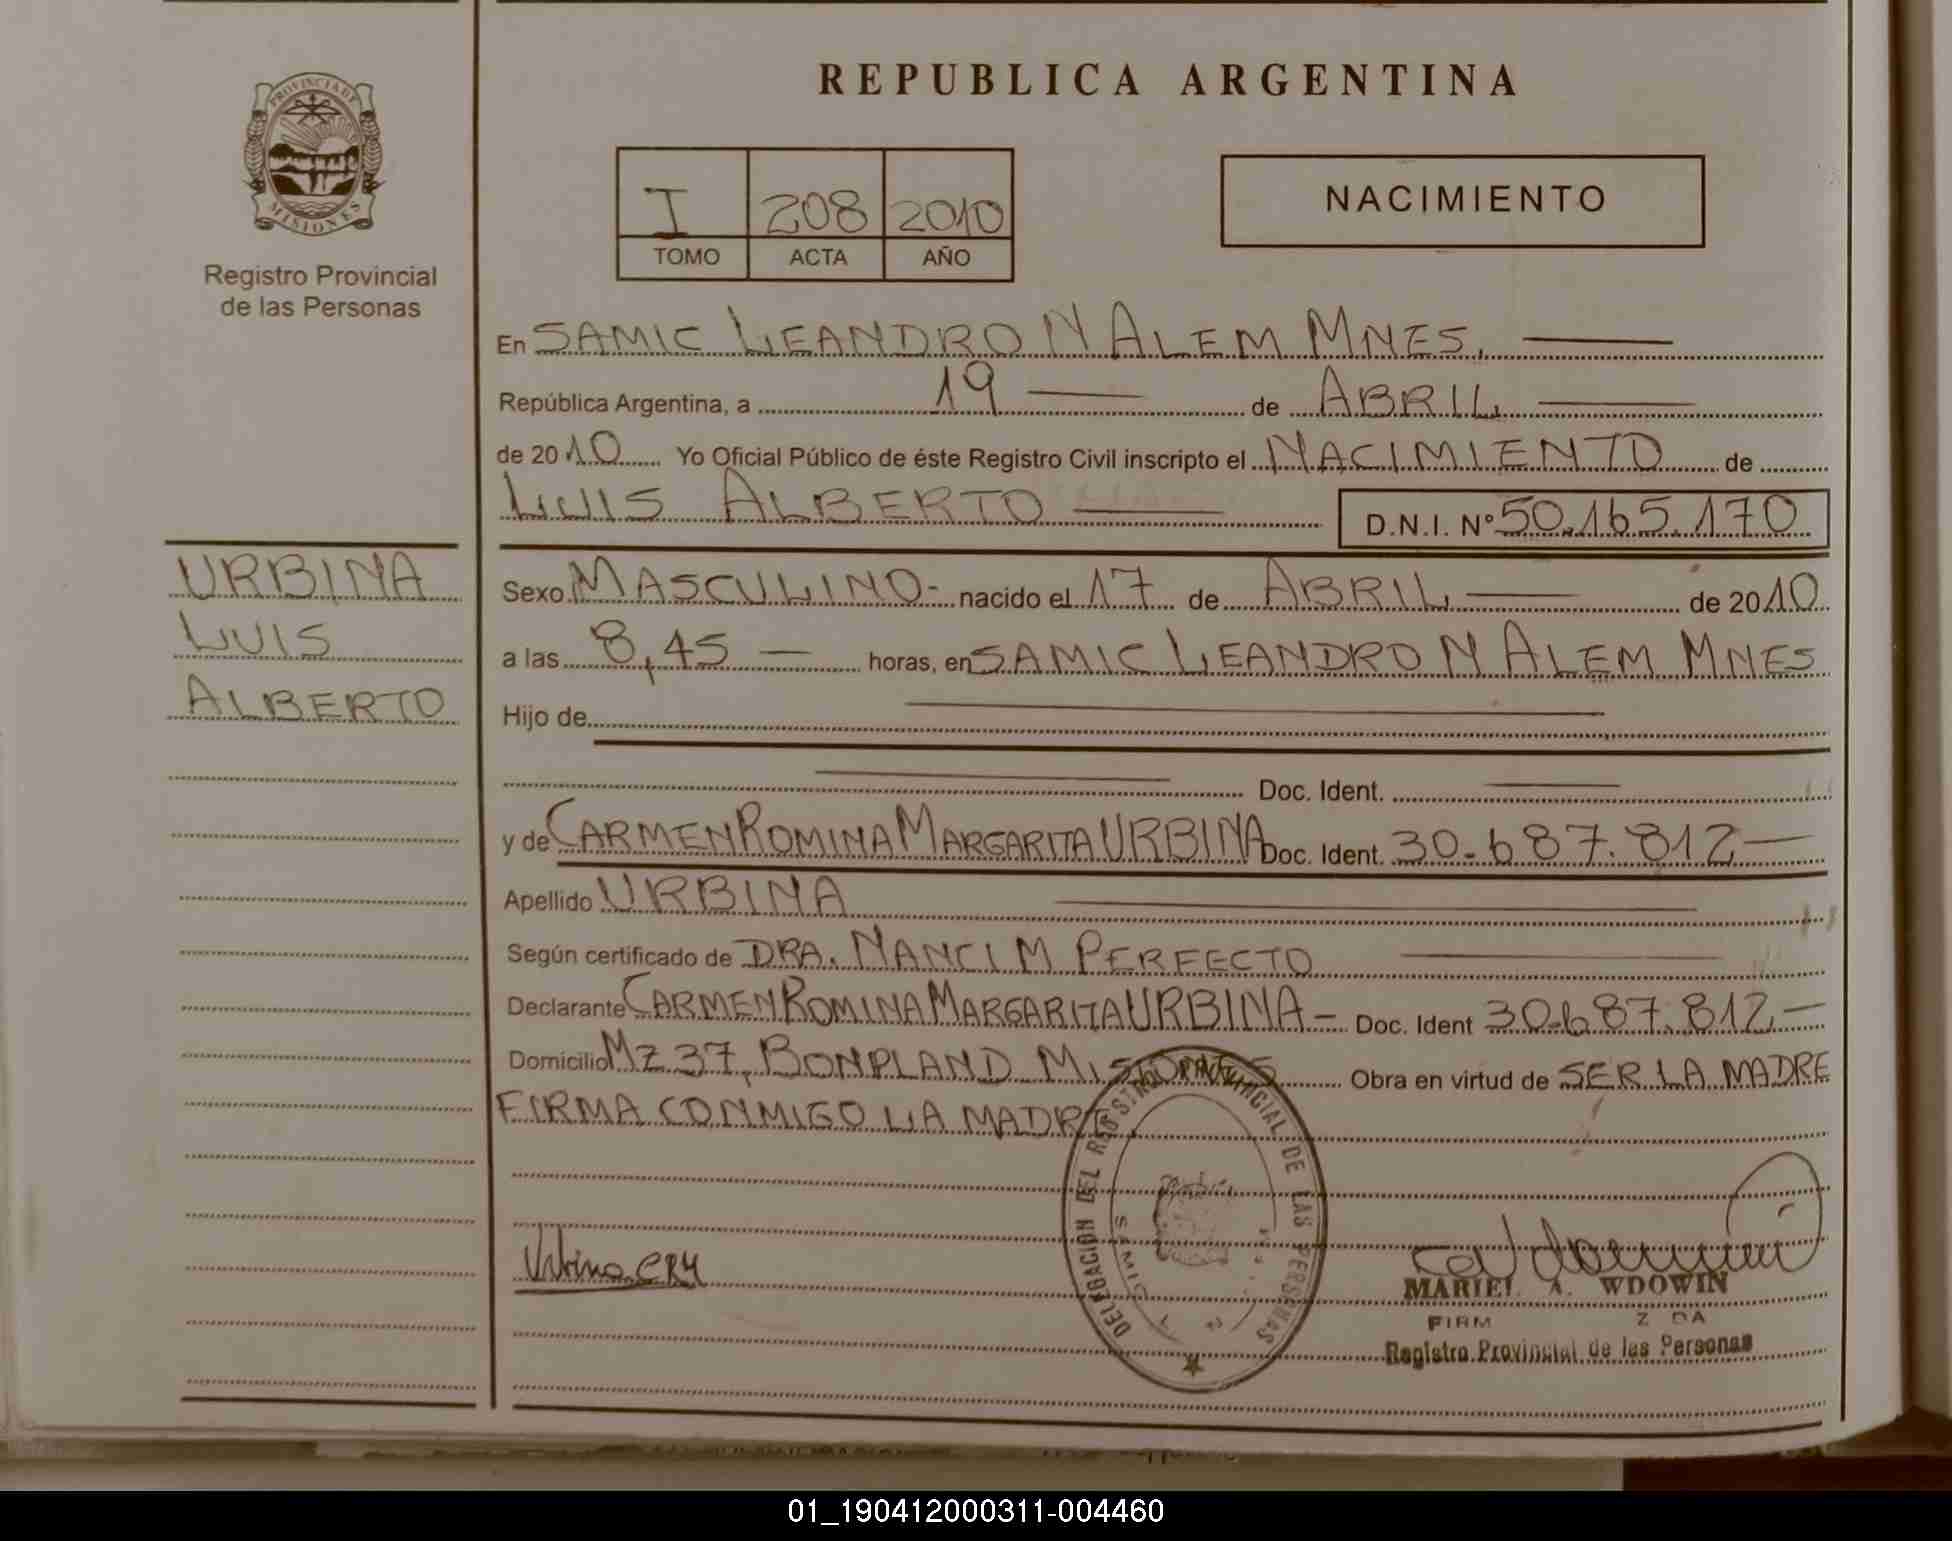 REPUBLICA ARGENTINA
PROVINCIA DE
MISIONES
Registro Provincial
de las Personas
I 208 2010
TOMO ACTA AÑO
NACIMIENTO
En SAMIC LEANDRO N ALEM MNES.
República Argentina, a 19 de ABRIL
de 2010 Yo Oficial Público de éste Registro Civil inscripto el NACIMIENTO de
LUIS ALBERTO D.N.I. Nº 50.165.170
URBINA
LUIS
ALBERTO
Sexo MASCULINO- nacido el 17 de ABRIL de 2010
a las 8,45 horas, en SAMIC LEANDRO N ALEM MNES
Hijo de
Doc. Ident.
y de CARMEN ROMINA MARGARITA URBINA Doc. Ident. 30.687.812
Apellido URBINA
Según certificado de DRA. NANCI M PERFECTO
Declarante CARMEN ROMINA MARGARITA URBINA- Doc. Ident 30.687.812
Domicilio MZ 37, BONPLAND MISIONES Obra en virtud de SER LA MADRE
FIRMA CONMIGO LA MADRE
DELEGACION DEL REGISTRO PROVINCIAL DE LAS PERSONAS
SAMIC
Urbina CRM
MARIEL A. WDOWIN
Registro Provincial de las Personas
01_190412000311-004460